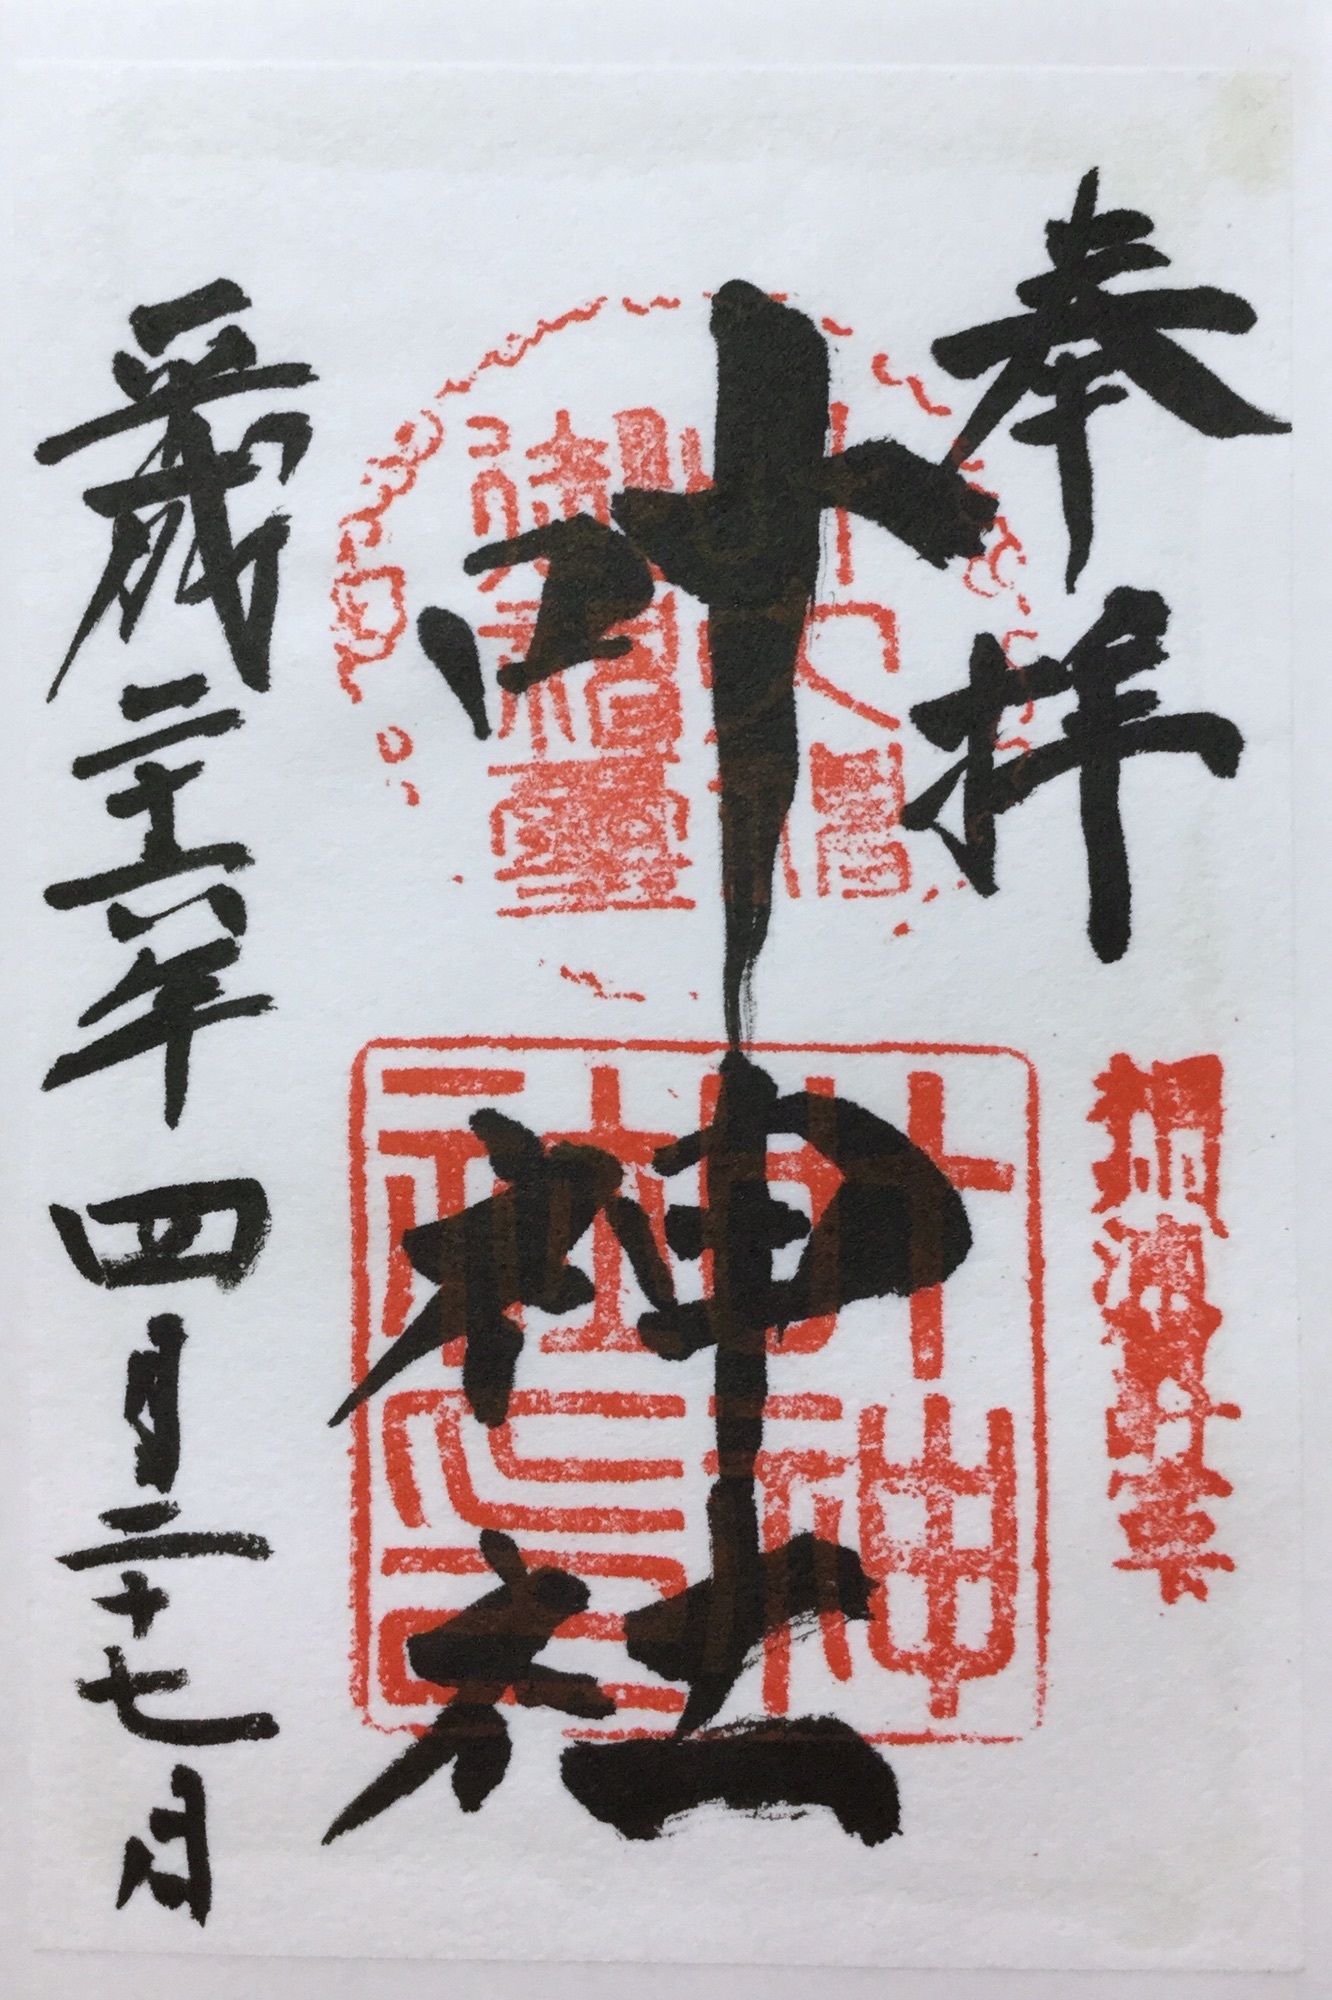 奉拝
叶神社
平成二十六年四月二十七日
叶神社印